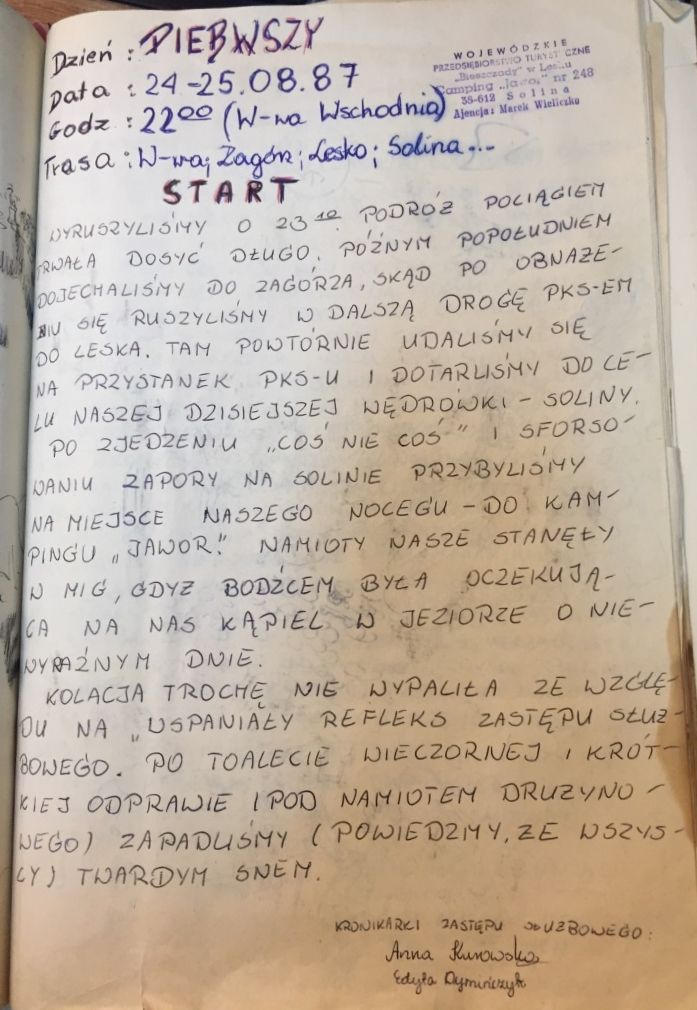 Dzień : PIERWSZY
Data : 24-25.08.87
Godz : 22⁰⁰ (W-wa Wschodnia)
Trasa : W-wa; Zagórz; Lesko; Solina...
WOJEWÓDZKIE
PRZEDSIĘBIORSTWO TURYSTYCZNE
„Bieszczady" w Lesku
Camping „Jawor" nr 248
38-612 Solina
Ajencja: Marek Wieliczko
START
WYRUSZYLIŚMY O 23¹⁰. PODRÓŻ POCIĄGIEM
TRWAŁA DOSYĆ DŁUGO. PÓŹNYM POPOŁUDNIEM
DOJECHALIŚMY DO ZAGÓRZA, SKĄD PO OBNAŻE-
NIU SIĘ RUSZYLIŚMY W DALSZĄ DROGĘ PKS-EM
DO LESKA. TAM POWTÓRNIE UDALIŚMY SIĘ
NA PRZYSTANEK PKS-U I DOTARLIŚMY DO CE-
LU NASZEJ DZISIEJSZEJ WĘDRÓWKI - SOLINY.
PO ZJEDZENIU „COŚ NIE COŚ" I SFORSO-
WANIU ZAPORY NA SOLINIE PRZYBYLIŚMY
NA MIEJSCE NASZEGO NOCEGU - DO KAM-
PINGU „JAWOR." NAMIOTY NASZE STANĘŁY
W MIG, GDYŻ BODŹCEM BYŁA OCZEKUJĄ-
CA NA NAS KĄPIEL W JEZIORZE O NIE-
WYRAŹNYM DNIE.
KOLACJA TROCHĘ NIE WYPALIŁA ZE WZGLĘ-
DU NA „WSPANIAŁY REFLEKS ZASTĘPU SŁUŻ-
BOWEGO. PO TOALECIE WIECZORNEJ I KRÓT-
KIEJ ODPRAWIE (POD NAMIOTEM DRUŻYNO-
WEGO) ZAPADLIŚMY (POWIEDZMY, ŻE WSZYS-
CY) TWARDYM SNEM.
KRONIKARKI ZASTĘPU SŁUŻBOWEGO:
Anna Kurowska
Edyta Dymińczyk